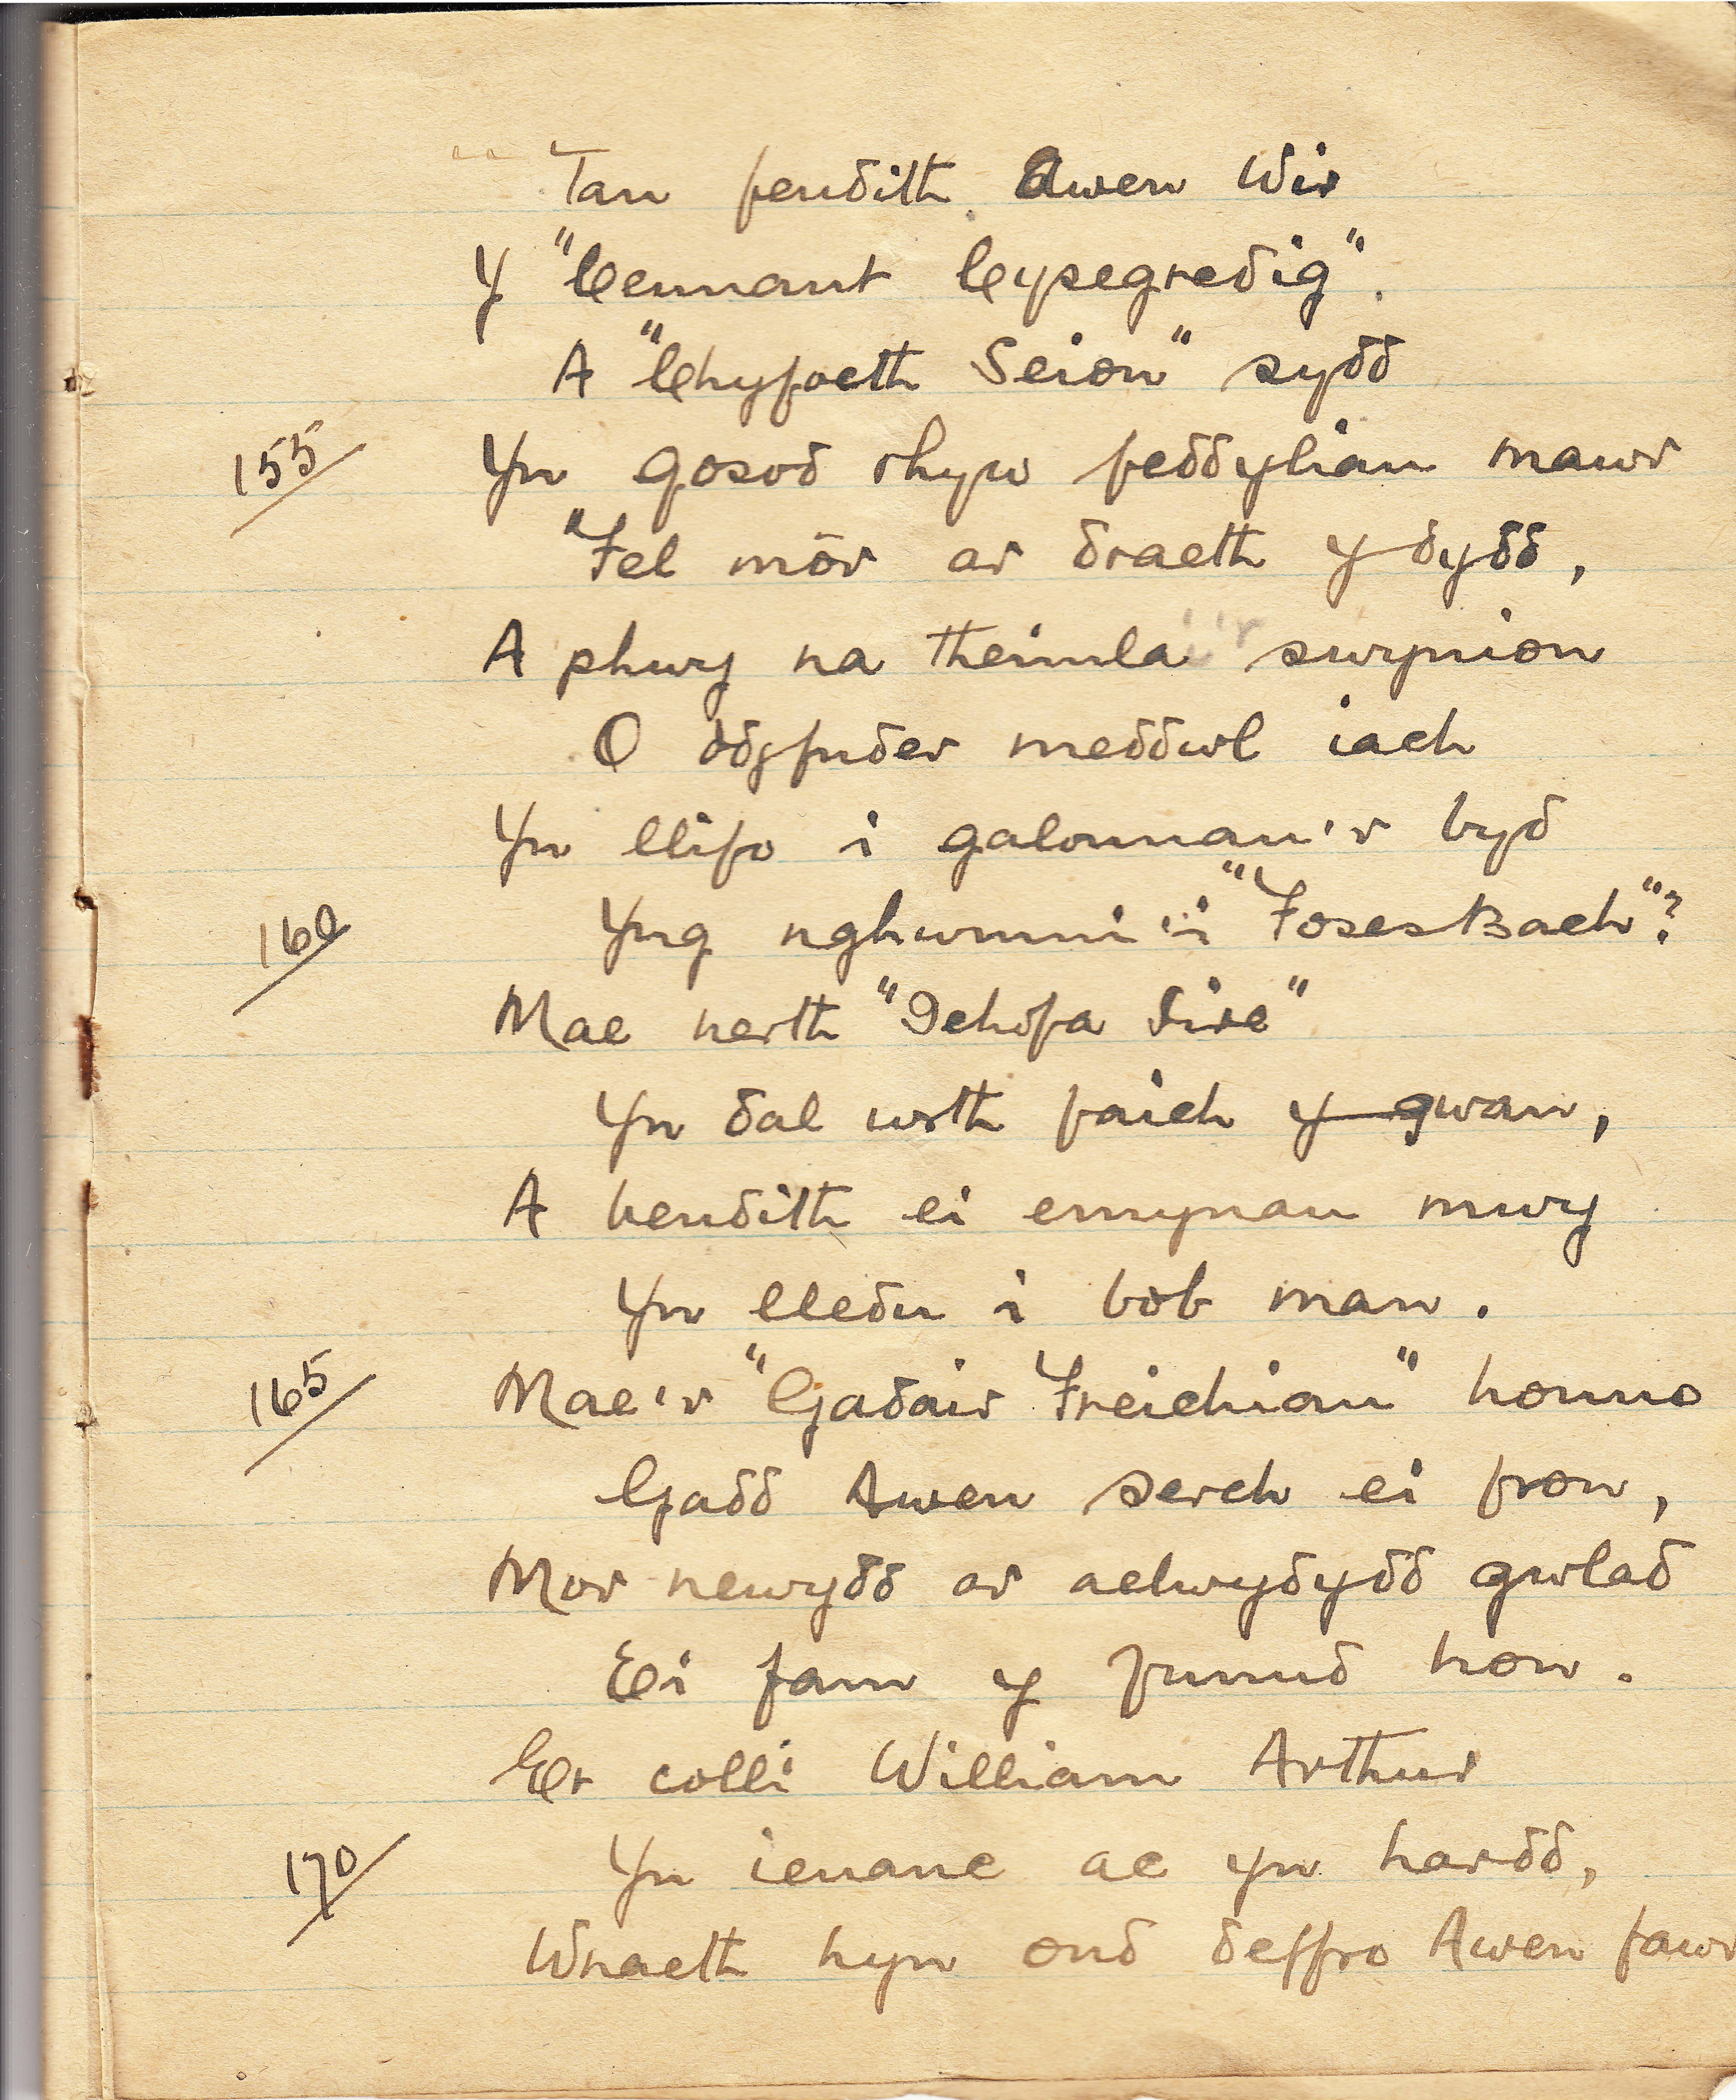 Tan fendith Awen Wir
Y "Cennant Cysegredig".
A "Chyfoeth Seion" sydd
155 Yn gosod rhyw feddyliau mawr
"Fel môr ar draeth y dydd,
A phwy na theimla i'r swynion
O ddyfnder meddwl iach
Yn llifo i galonnau'r byd
160 Yng nghwmni'i "Foses Bach"?
Mae nerth "Jehofa Jire"
Yn dal wrth faich y gwan,
A bendith ei emynau mwy
Yn lledu i bob man.
165 Mae'r "Gadair Freichiau" honno
Gadd Awen serch ei fron,
Mor newydd ar aelwydydd gwlad
Ei fam y funud hon.
Er colli William Arthur
170 Yn ieuanc ac yn hardd,
Wnaeth hyn ond deffro Awen fawr